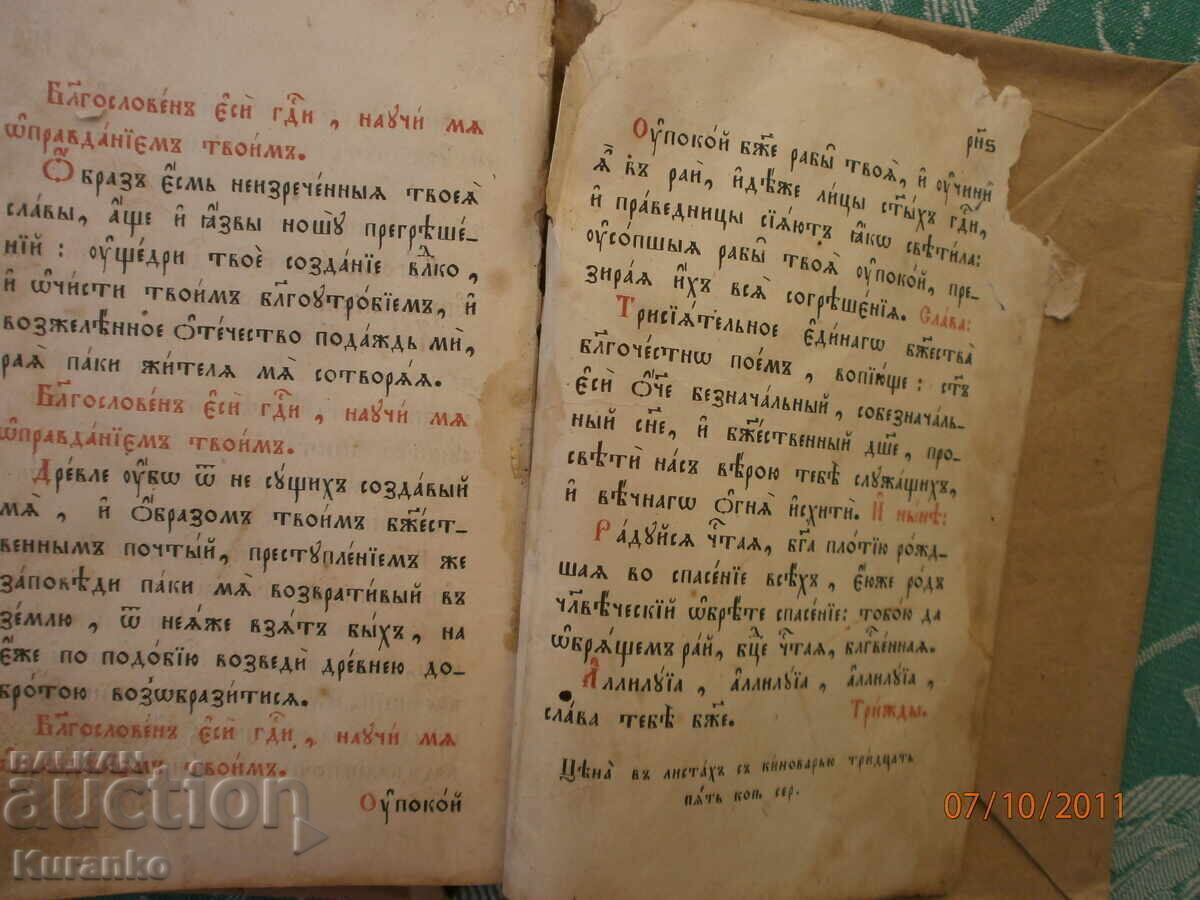 Бл҃гослове́нъ є҆сѝ гд҇и, наꙋчи́ мѧ
ѡ҆правда́нїємъ твои̑мъ.
Ѻ҆́бразъ є҆́смь неизрече́нныѧ твоеѧ̀
сла́вы, а҆́ще и҆ ꙗ҆́звы ношꙋ̀ прегрѣше́-
нїй: оу҆ще́дри твоѐ созда́нїе вл҇ко,
и҆ ѡ҆чи́сти твои́мъ бл҃гоꙋтро́бїемъ, и҆
возжелѣ́нное ѻ҆те́чество пода́ждь мѝ,
раѧ̀ па́ки жи́телѧ мѧ̀ сотворѧ́ѧ.
Бл҃гослове́нъ є҆сѝ гд҇и, наꙋчи́ мѧ
ѡ҆правда́нїємъ твои̑мъ.
Дре́вле оу҆́бѡ ѿ не сꙋ́щихъ созда́вый
мѧ̀, и҆ ѻ҆́бразомъ твои́мъ бж҇ест-
веннымъ почты́й, престꙋпле́нїемъ же
за́повѣди па́ки мѧ̀ возврати́вый въ
зе́млю, ѿ неѧ́же взѧ́тъ бы́хъ, на
є҆́же по подо́бїю возведѝ дре́внею до-
бро́тою возѡбрази́тисѧ.
Бл҃гослове́нъ є҆сѝ гд҇и, наꙋчи́ мѧ
твои̑мъ.
Оу҆поко́й
рн҃ѕ
Оу҆поко́й бж҃е рабы̑ твоѧ̑, и҆ оу҆чинѝ
ѧ҆̀ въ рай, и҆дѣ́же ли́цы ст҃ы́хъ гд҇и,
и҆ пра́ведницы сїѧ́ютъ ꙗ҆́кѡ свѣти̑ла:
оу҆со́пшыѧ рабы̑ твоѧ̑ оу҆поко́й, пре-
зира́ѧ и҆́хъ всѧ̑ согрѣшє́нїѧ. Сла́ва:
Трисїѧ́тельное є҆ди́нагѡ бж҇ества̀
бл҃гоче́стнѡ пое́мъ, вопїю́ще: ст҃ъ
є҆сѝ ѻ҆́ч҃е безнача́льный, собезнача́ль-
ный сн҃е, и҆ бж҇е́ственный дш҃е, про-
свѣтѝ на́съ вѣ́рою тебѣ̀ слꙋ́жащихъ,
и҆ вѣ́чнагѡ ѻ҆гнѧ̀ и҆схитѝ. И҆ ны́нѣ:
Ра́дꙋйсѧ чт҇аѧ, бг҃а пло́тїю ро́жд-
шаѧ во спасе́нїе всѣ́хъ, є҆ю́же ро́дъ
чл҃вѣ́ческїй ѡ҆брѣ́те спасе́нїе: тобо́ю да
ѡ҆брѧ́щемъ ра́й, бц҇е чт҇аѧ, бл҃гве́ннаѧ.
А҆ллилꙋ́їа, а҆ллилꙋ́їа, а҆ллилꙋ́їа,
сла́ва тебѣ̀ бж҃е. Три́жды.
Цѣна̀ въ листа́хъ съ ки́новарью три́дцать
пѧ́ть коп. сер.
BALKAN
auction
Kuranko
07/10/2011